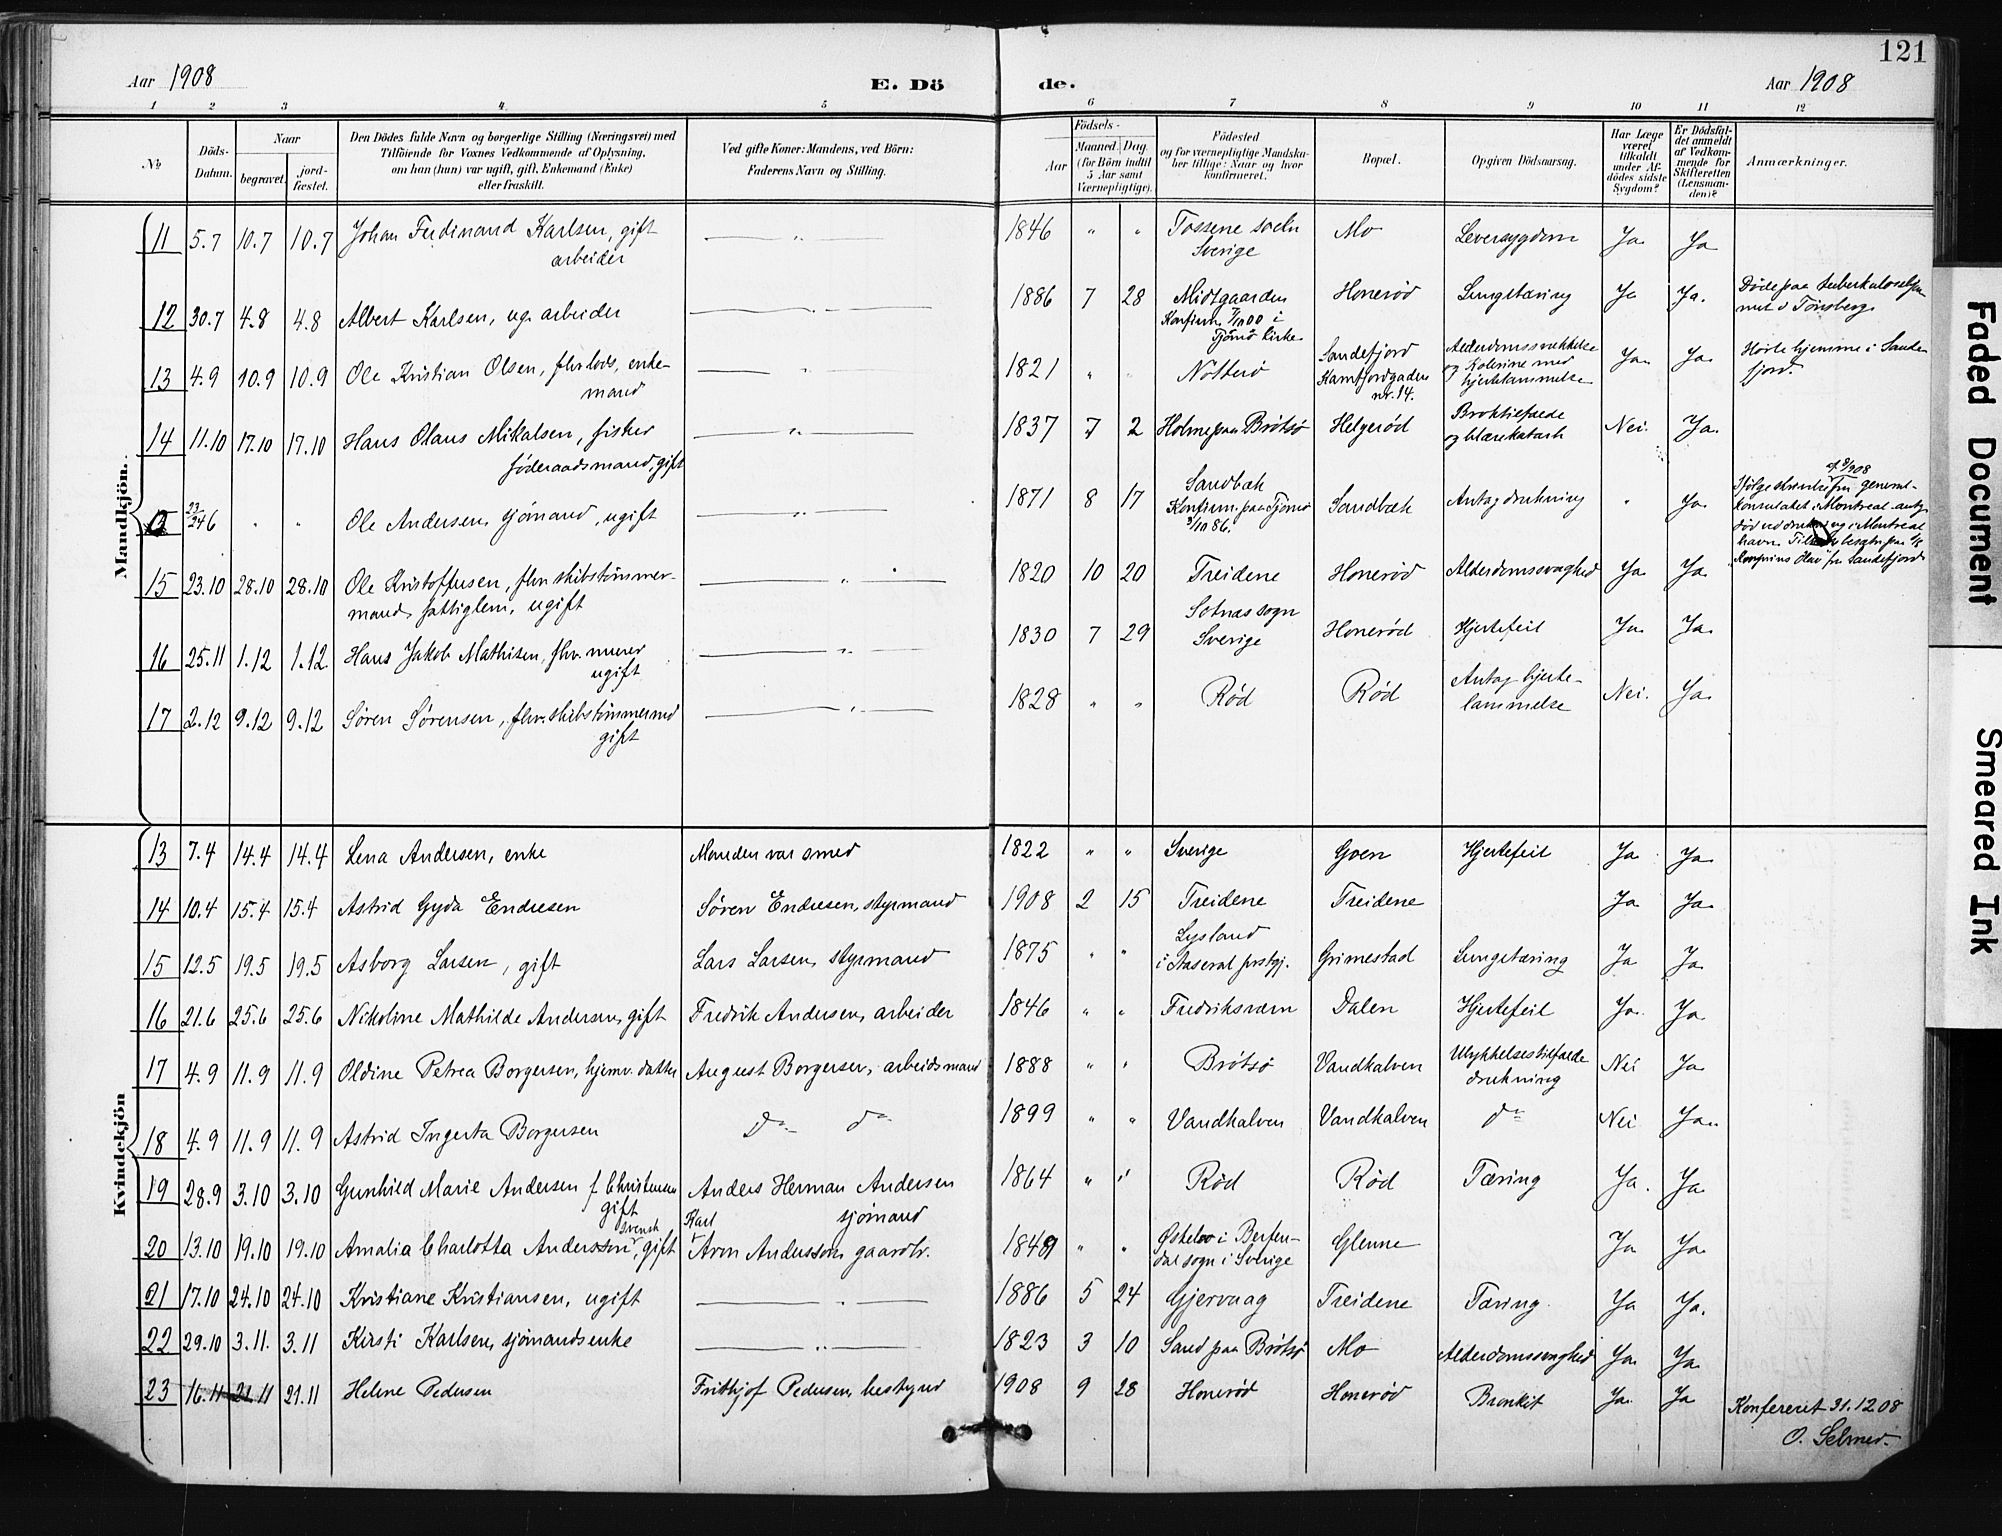 121
Aar 1908 E. Dö de. Aar 1908
1 2 3 4 5 6 7 8 9 10 11 12
No.
Döds-Datum.
Naar begravet. jord-fæstet.
Den Dödes fulde Navn og borgerlige Stilling (Næringsvei) med
Tilföiende for Voxnes Vedkommende af Oplysning,
om han (hun) var ugift, gift, Enkemand (Enke)
eller fraskilt.
Ved gifte Koner: Mandens, ved Börn:
Faderens Navn og Stilling.
Födsels-
Aar Maaned. Dag.
(for Börn indtil
5 Aar samt
Værnepligtige).
Födested
og for værnepligtige Mandska-
ber tillige: Naar og hvor
konfirmeret.
Bopæl.
Opgiven Dödsaarsag.
Har Læge
været
tilkaldt
under Af-
dödes sidste
Sygdom?
Er Dödsfal-
det anmeldt
af Vedkom-
mende for
Skifteretten
(Lensman-
den)?
Anmærkninger.
Mandkjön.
11 5.7 10.7 10.7 Johan Ferdinand Karlsen, gift
arbeider
1846 " " Tossene socln
Sverige
Mo Leversygdom Ja Ja
12 30.7 4.8 4.8 Albert Karlsen, ug. arbeider
1886 7 28 Midtgaarden
Konfirm. i
Tjømø kirke
Honerød Lungetæring Ja Ja.
Døde paa
i Tønsberg
13 4.9 10.9 10.9 Ole Kristian Olsen, fhv. lods, enke-
mand
1821 " " Nøtterø
Sandefjord
Kamfjordgaden
nr. 14.
Alderdomssvækkelse
og Kolerine med
hjertelammelse
Ja Ja Hørte hjemme i Sande-
fjord.
14 11.10 17.10 17.10 Hans Olaus Mikalsen, fisker
føderaadsmand, gift
1837 7 2 Holme paa Brøtsø Helgerød
Broktilfælde
og blærekatarh
Nei. Ja.
23/24 6 " " Ole Andersen, sjømand, ugift
1871 8 17 Sandbæk
Konfirm. paa Tjømø
/10 86.
Sandbæk Antag. drukning " Ja
Ifølge skrivelse fra general-
konsulatet i Montreal antag.
død ved drukning i Montreal
havn.
Kronprins Olav fra Sandefjord
15 23.10 28.10 28.10 Ole Kristoffersen, fhv. skibstømmer-
mand, fattiglem, ugift
1820 10 20 Treidene Honerød Alderdomssvaghed Ja Ja
16 25.11 1.12 1.12 Hans Jakob Mathisen, fhv. murer
ugift
1830 7 29 Sotnæs sogn
Sverige
Honerød Hjertefeil Ja Ja
17 2.12 9.12 9.12 Søren Sørensen, fhv. skibstømmermd
gift
1828 " " Rød Rød Antag. hjerte-
lammelse
Nei. Ja
Kvindekjön
13 7.4 14.4 14.4 Lena Andersen, enke Manden var smed 1822 " " Sverige Goen Hjertefeil Ja Ja
14 10.4 15.4 15.4 Astrid Gyda Endresen Søren Endresen, styrmand 1908 2 15 Treidene Treidene Ja Ja
15 12.5 19.5 19.5 Asborg Larsen, gift Lars Larsen, styrmand 1875 " " Lysland
i Aaseral prstgj.
Grimestad Lungetæring Ja Ja
16 21.6 25.6 25.6 Nikoline Mathilde Andersen, gift Fredrik Andersen, arbeider 1846 " " Fredriksværn Dalen Hjertefeil Ja Ja
17 4.9 11.9 11.9 Oldine Petrea Borgersen, hjemv. datter August Borgersen, arbeidsmand 1888 " " Brøtsø Vandkalven Ulykkelsestilfælde
drukning
Nei Ja
18 4.9 11.9 11.9 Astrid Ingerta Borgersen Do Do 1899 " " Vandkalven Vandkalven Do Nei Ja
19 28.9 3.10 3.10 Gunhild Marie Andersen f. Christensen
gift
Anders Herman Andersen
sjømand
1864 " " Rød Rød Tæring Ja. Ja
20 13.10 19.10 19.10 Amalia Charlotta Andersson, svensk gift
Karl Aron Andersson, gaardbr.
1849 " " i Berfen-
dal sogn i Sverige
Glenne Ja Ja
21 17.10 24.10 24.10 Kristiane Kristiansen, ugift 1886 5 24 Gjervaag Treidene Tæring Ja Ja.
22 29.10 3.11. 3.11 Kirsti Karlsen, sjømandsenke 1823 3 10 Sand paa Brøtsø Mo Alderdomssvaghed Ja Ja
23 16.11 21.11 21.11 Helene Pedersen Frithjof Pedersen, bestyrer 1908 9 28 Honerød Honerød Bronkit Ja Ja
Konfereret 31.12 08
O. Selmer.
Faded Document
Smeared Ink